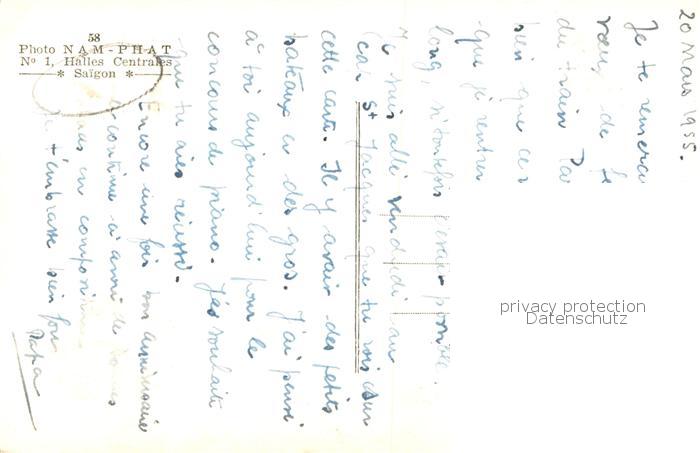 58
Photo NAM-PHAT
Nº 1, Halles Centrales
* Saïgon *
20 Mars 1955.
Je te remercie
vœux de
du train
bien que ces
que je rentrer
long si toutefois possible.
Je suis allé vendredi au
cap St Jacques que tu vois sur
cette carte. Il y avait des petits
bateaux et des gros. J'ai pensé
à toi aujourd'hui pour le
concours de piano. J'ai souhaité
que tu aies réussi.
Encore une fois bon anniversaire
continue à avoir de bonnes
en composition
Je t'embrasse bien fort
Papa
privacy protection
Datenschutz